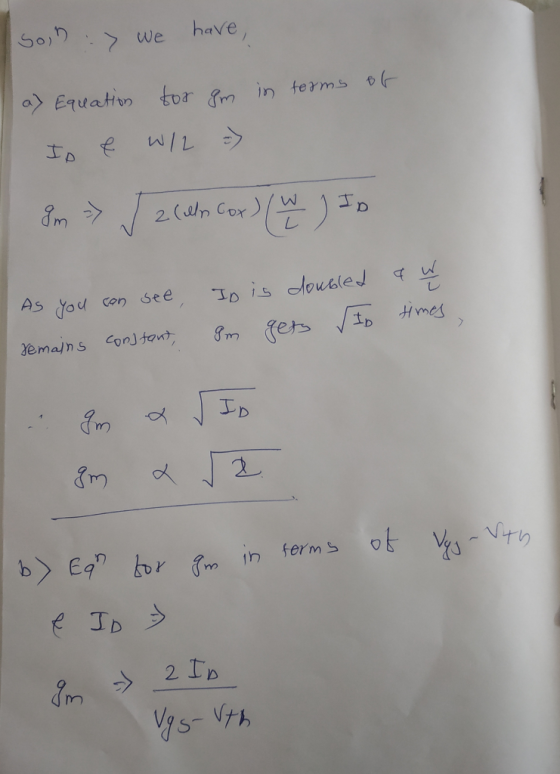 Sol^n :-> we have,
a) Equation for gm in terms of
I_D & W/L =>
gm => √(2(μn Cox)(W/L) I_D)
As you can see, I_D is doubled & W/L
remains constant, gm gets √I_D times,
∴ gm ∝ √I_D
gm ∝ √2
b) Eq^n for gm in terms of Vgs-Vth
& I_D =>
gm => 2 I_D / Vgs-Vth